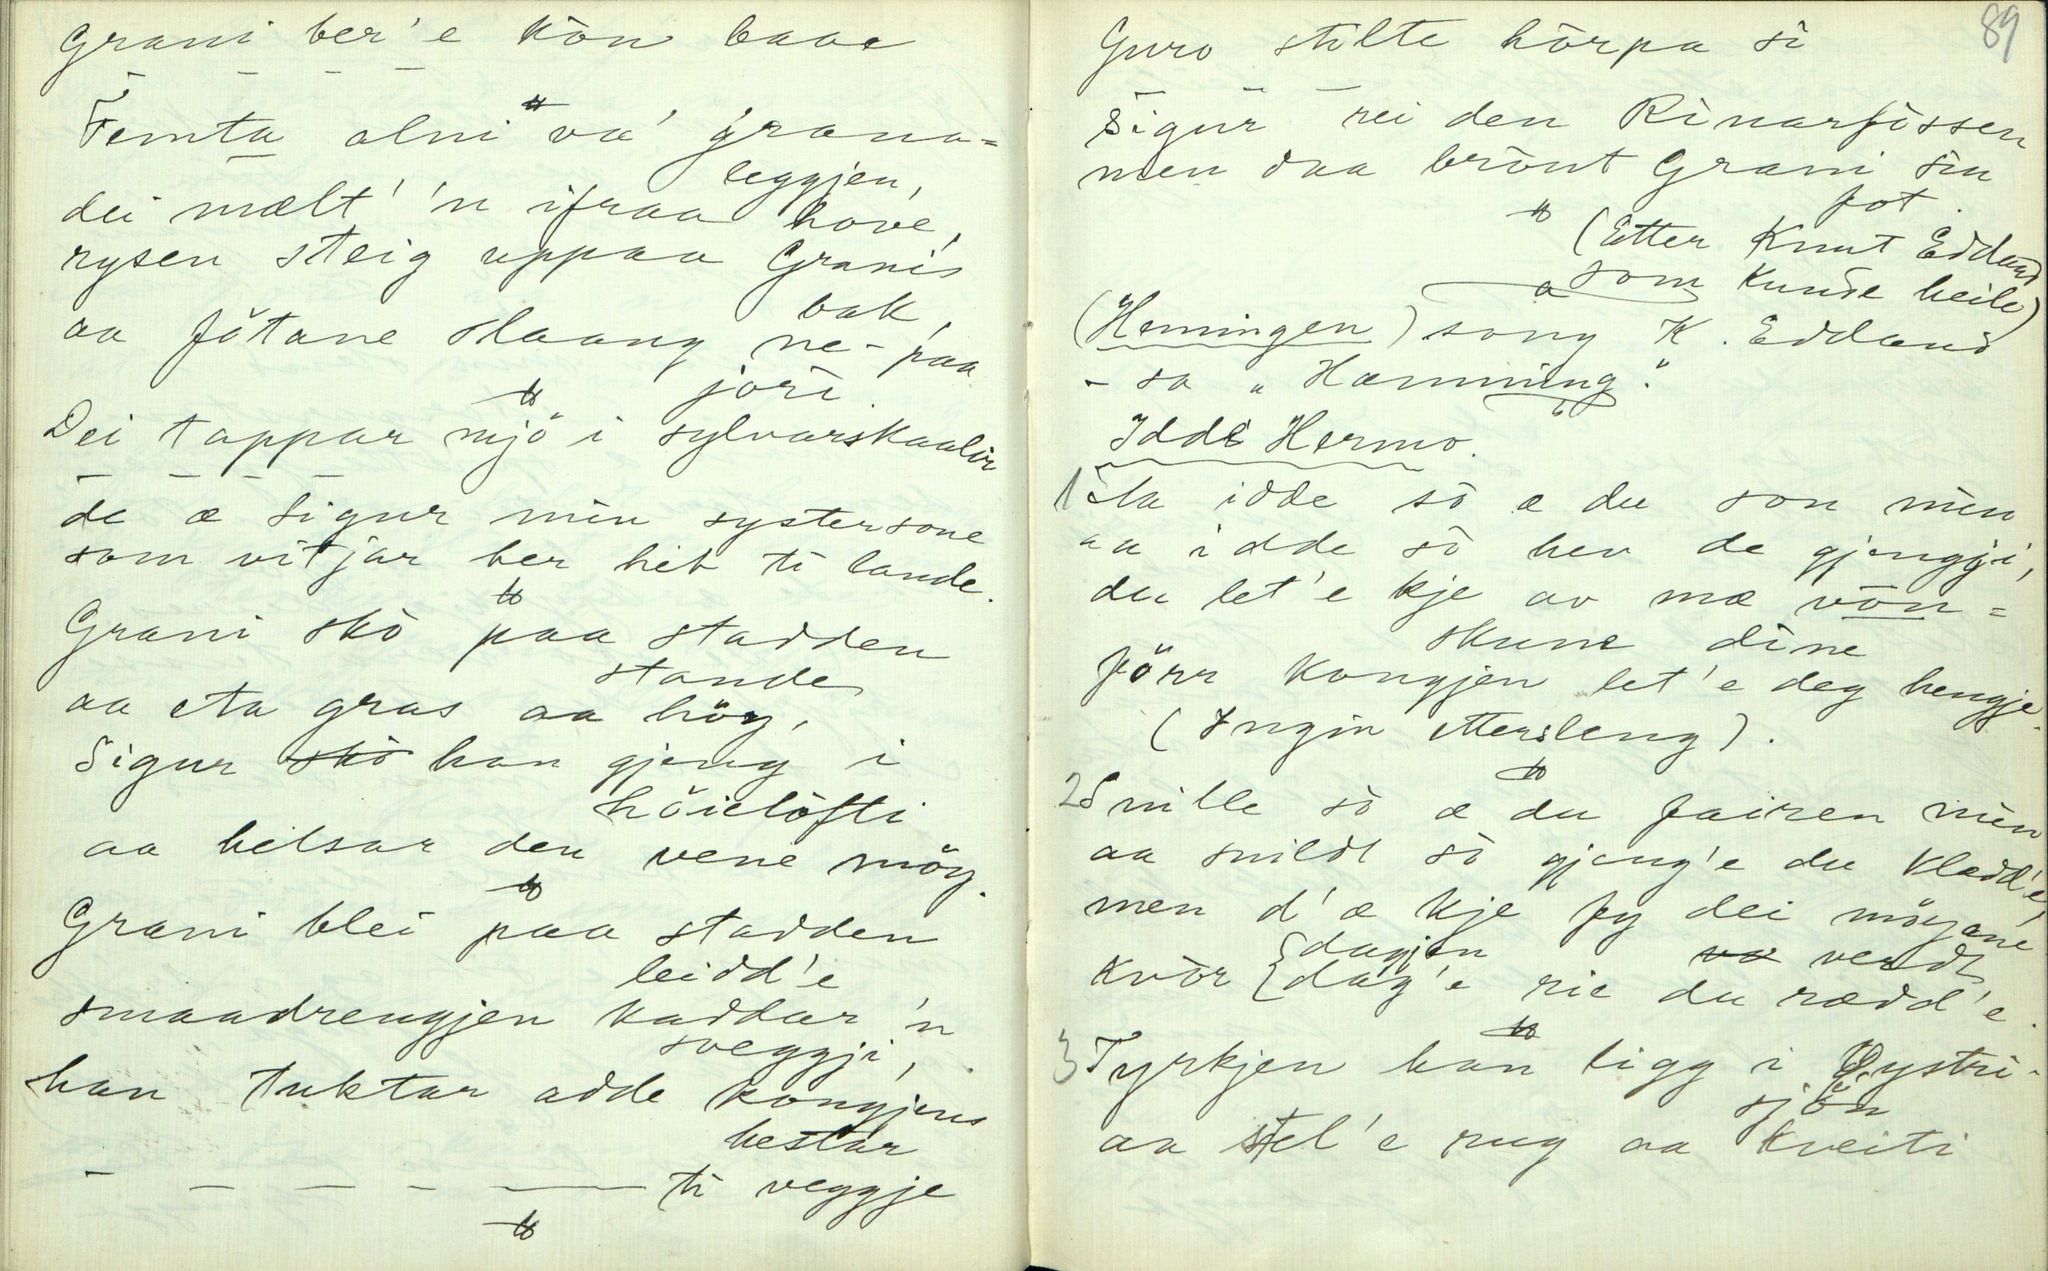 Grani ber'e kön baae
– – – –
Femta alni va' grana=
leggjen,
dei mælt' 'n ifraa hove,
rysen steig uppaa Granis
bak,
aa fötane slaang ne-paa
jori.
Dei tappar mjö i sylvarskaalir
– – – –
de æ Sigur min systersone
som vitjar her hit ti lande.
Grani sko paa stadden
stande
aa eta gras aa höy,
Sigur sko han gjeng i
höielofti
aa helsar den vene möy.
Grani blei paa stadden
leidd'e
smaadrengjen kaddar 'n
sveggji,
han tuktar adde kongjens
hestar
– – – – – ti veggje
89
Guro stilte hörpa si
– – –
Sigur rei den Rinarfossen
men daa brönt Grani sin
fot.
(Etter Knut Eddand
som kunde heile)
(Hemingen) song K. Eddand
– sa "Hæmming".
Iddi Hermo.
1 Ila idde so æ du son min
aa idde so hev de gjengji,
du let'e kje av mæ von=
skune dine
förr kongjen let'e deg hengje.
(Ingin ettersleng).
2 Snille so æ du fairen min
aa snildt so gjeng'e du kladd'e,
men d'æ kje fy dei möyane
dagjen va verdt
kvör dag'e rie du rædd'e.
3 Tyrkjen han ligg i Öystri-
sjön
aa stel'e rug aa kveiti